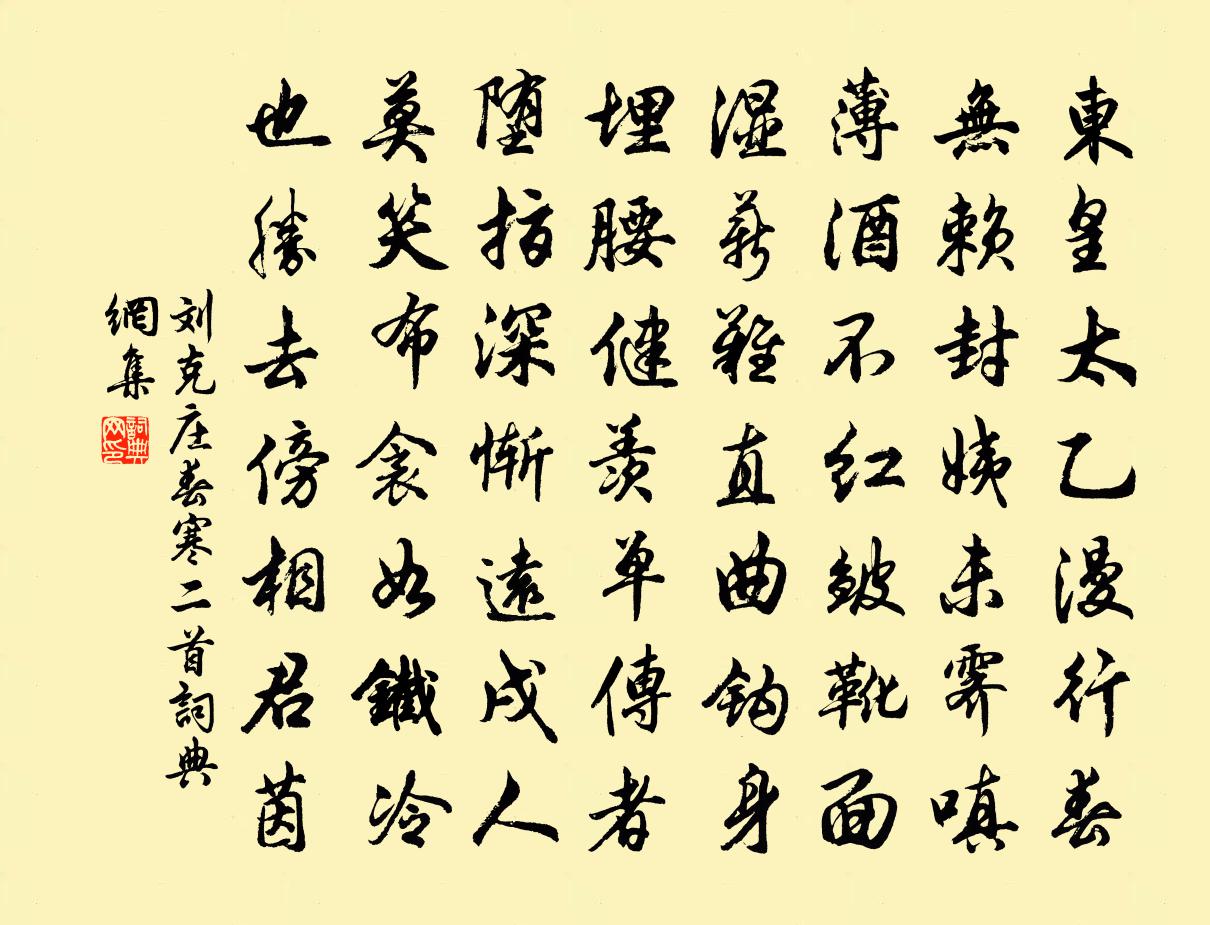 東皇太乙漫行春
無賴封姨未霽嗔
薄酒不红皴靴面
湿薪難直曲鈎身
埋腰健羡单傳者
堕指深慚遠戍人
莫笑布衾如鐵冷
也勝去傍相君茵
刘克庄春寒二首詞典
網集
詞典网印